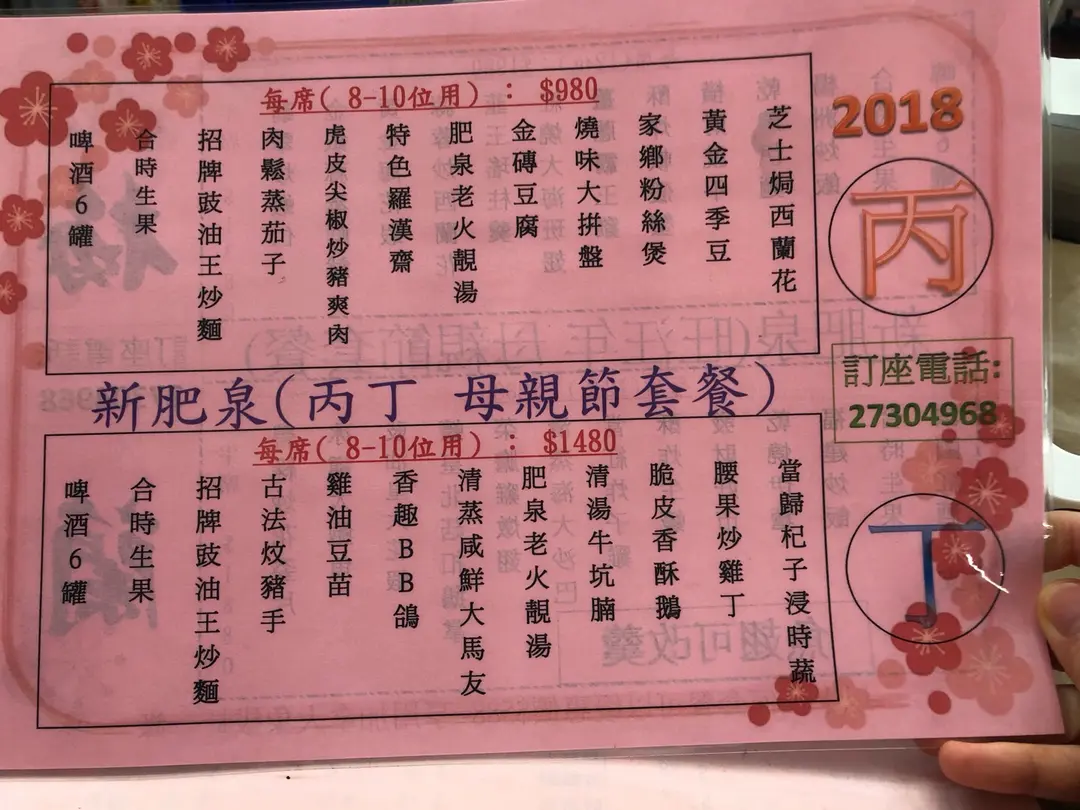 2018
丙
每席( 8-10位用) : $980
芝士焗西蘭花
黃金四季豆
家鄉粉絲煲
燒味大拼盤
金磚豆腐
肥泉老火靚湯
特色羅漢齋
虎皮尖椒炒豬爽肉
肉鬆蒸茄子
招牌豉油王炒麵
合時生果
啤酒6罐
新肥泉(丙丁 母親節套餐)
訂座電話:
27304968
丁
每席( 8-10位用) : $1480
當歸杞子浸時蔬
腰果炒雞丁
脆皮香酥鵝
清湯牛坑腩
肥泉老火靚湯
清蒸咸鮮大馬友
香趣BB鴿
雞油豆苗
古法炆豬手
招牌豉油王炒麵
合時生果
啤酒6罐